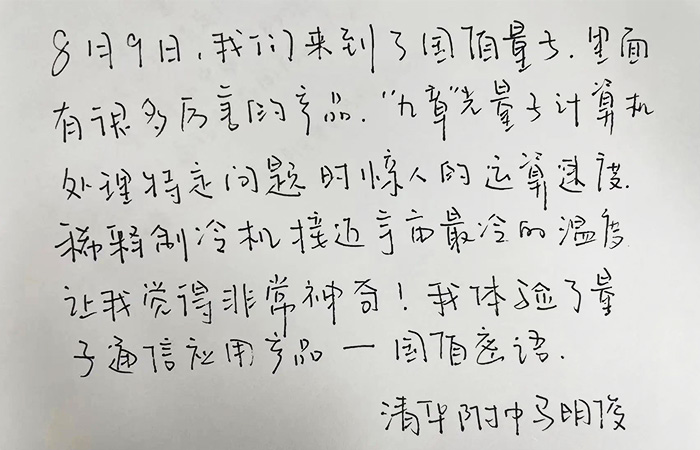 8月9日,我们来到了国盾量子.里面
有很多厉害的产品."九章"光量子计算机
处理特定问题时惊人的运算速度.
稀释制冷机接近宇宙最冷的温度
让我觉得非常神奇!我体验了量
子通信应用产品一国盾密语.
清华附中马明俊